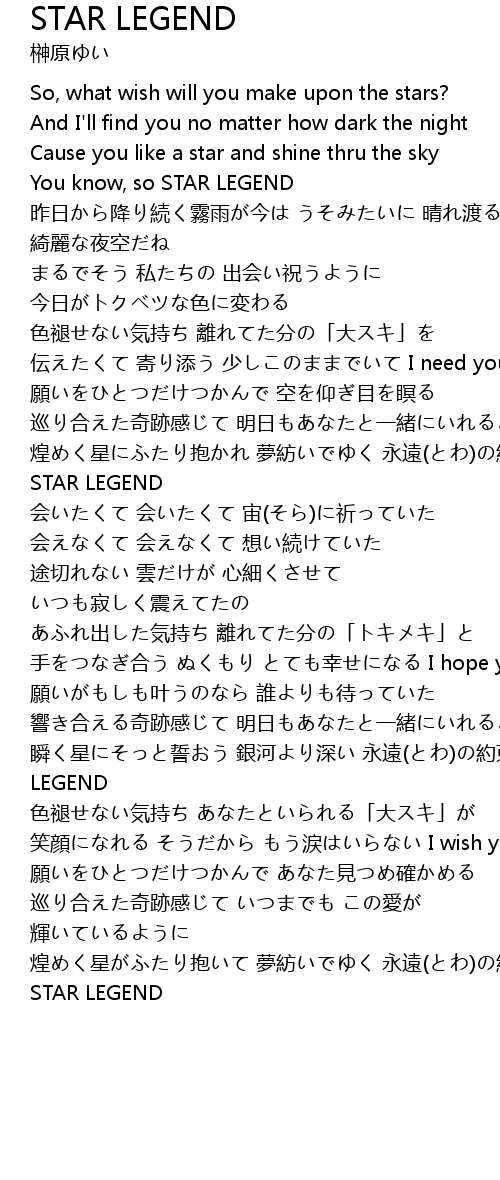 STAR LEGEND
榊原ゆい
So, what wish will you make upon the stars?
And I'll find you no matter how dark the night
Cause you like a star and shine thru the sky
You know, so STAR LEGEND
昨日から降り続く霧雨が今は うそみたいに 晴れ渡る
綺麗な夜空だね
まるでそう 私たちの 出会い祝うように
今日がトクベツな色に変わる
色褪せない気持ち 離れてた分の「大スキ」を
伝えたくて 寄り添う 少しこのままでいて I need you
願いをひとつだけつかんで 空を仰ぎ目を瞑る
巡り合えた奇跡感じて 明日もあなたと一緒にいれる
煌めく星にふたり抱かれ 夢紡いでゆく 永遠(とわ)の
STAR LEGEND
会いたくて 会いたくて 宙(そら)に祈っていた
会えなくて 会えなくて 想い続けていた
途切れない 雲だけが 心細くさせて
いつも寂しく震えてたの
あふれ出した気持ち 離れてた分の「トキメキ」と
手をつなぎ合う ぬくもり とても幸せになる I hope
願いがもしも叶うのなら 誰よりも待っていた
響き合える奇跡感じて 明日もあなたと一緒にいれる
瞬く星にそっと誓おう 銀河より深い 永遠(とわ)の約
LEGEND
色褪せない気持ち あなたといられる「大スキ」が
笑顔になれる そうだから もう涙はいらない I wish
願いをひとつだけつかんで あなた見つめ確かめる
巡り合えた奇跡感じて いつまでも この愛が
輝いているように
煌めく星がふたり抱いて 夢紡いでゆく 永遠(とわ)の
STAR LEGEND